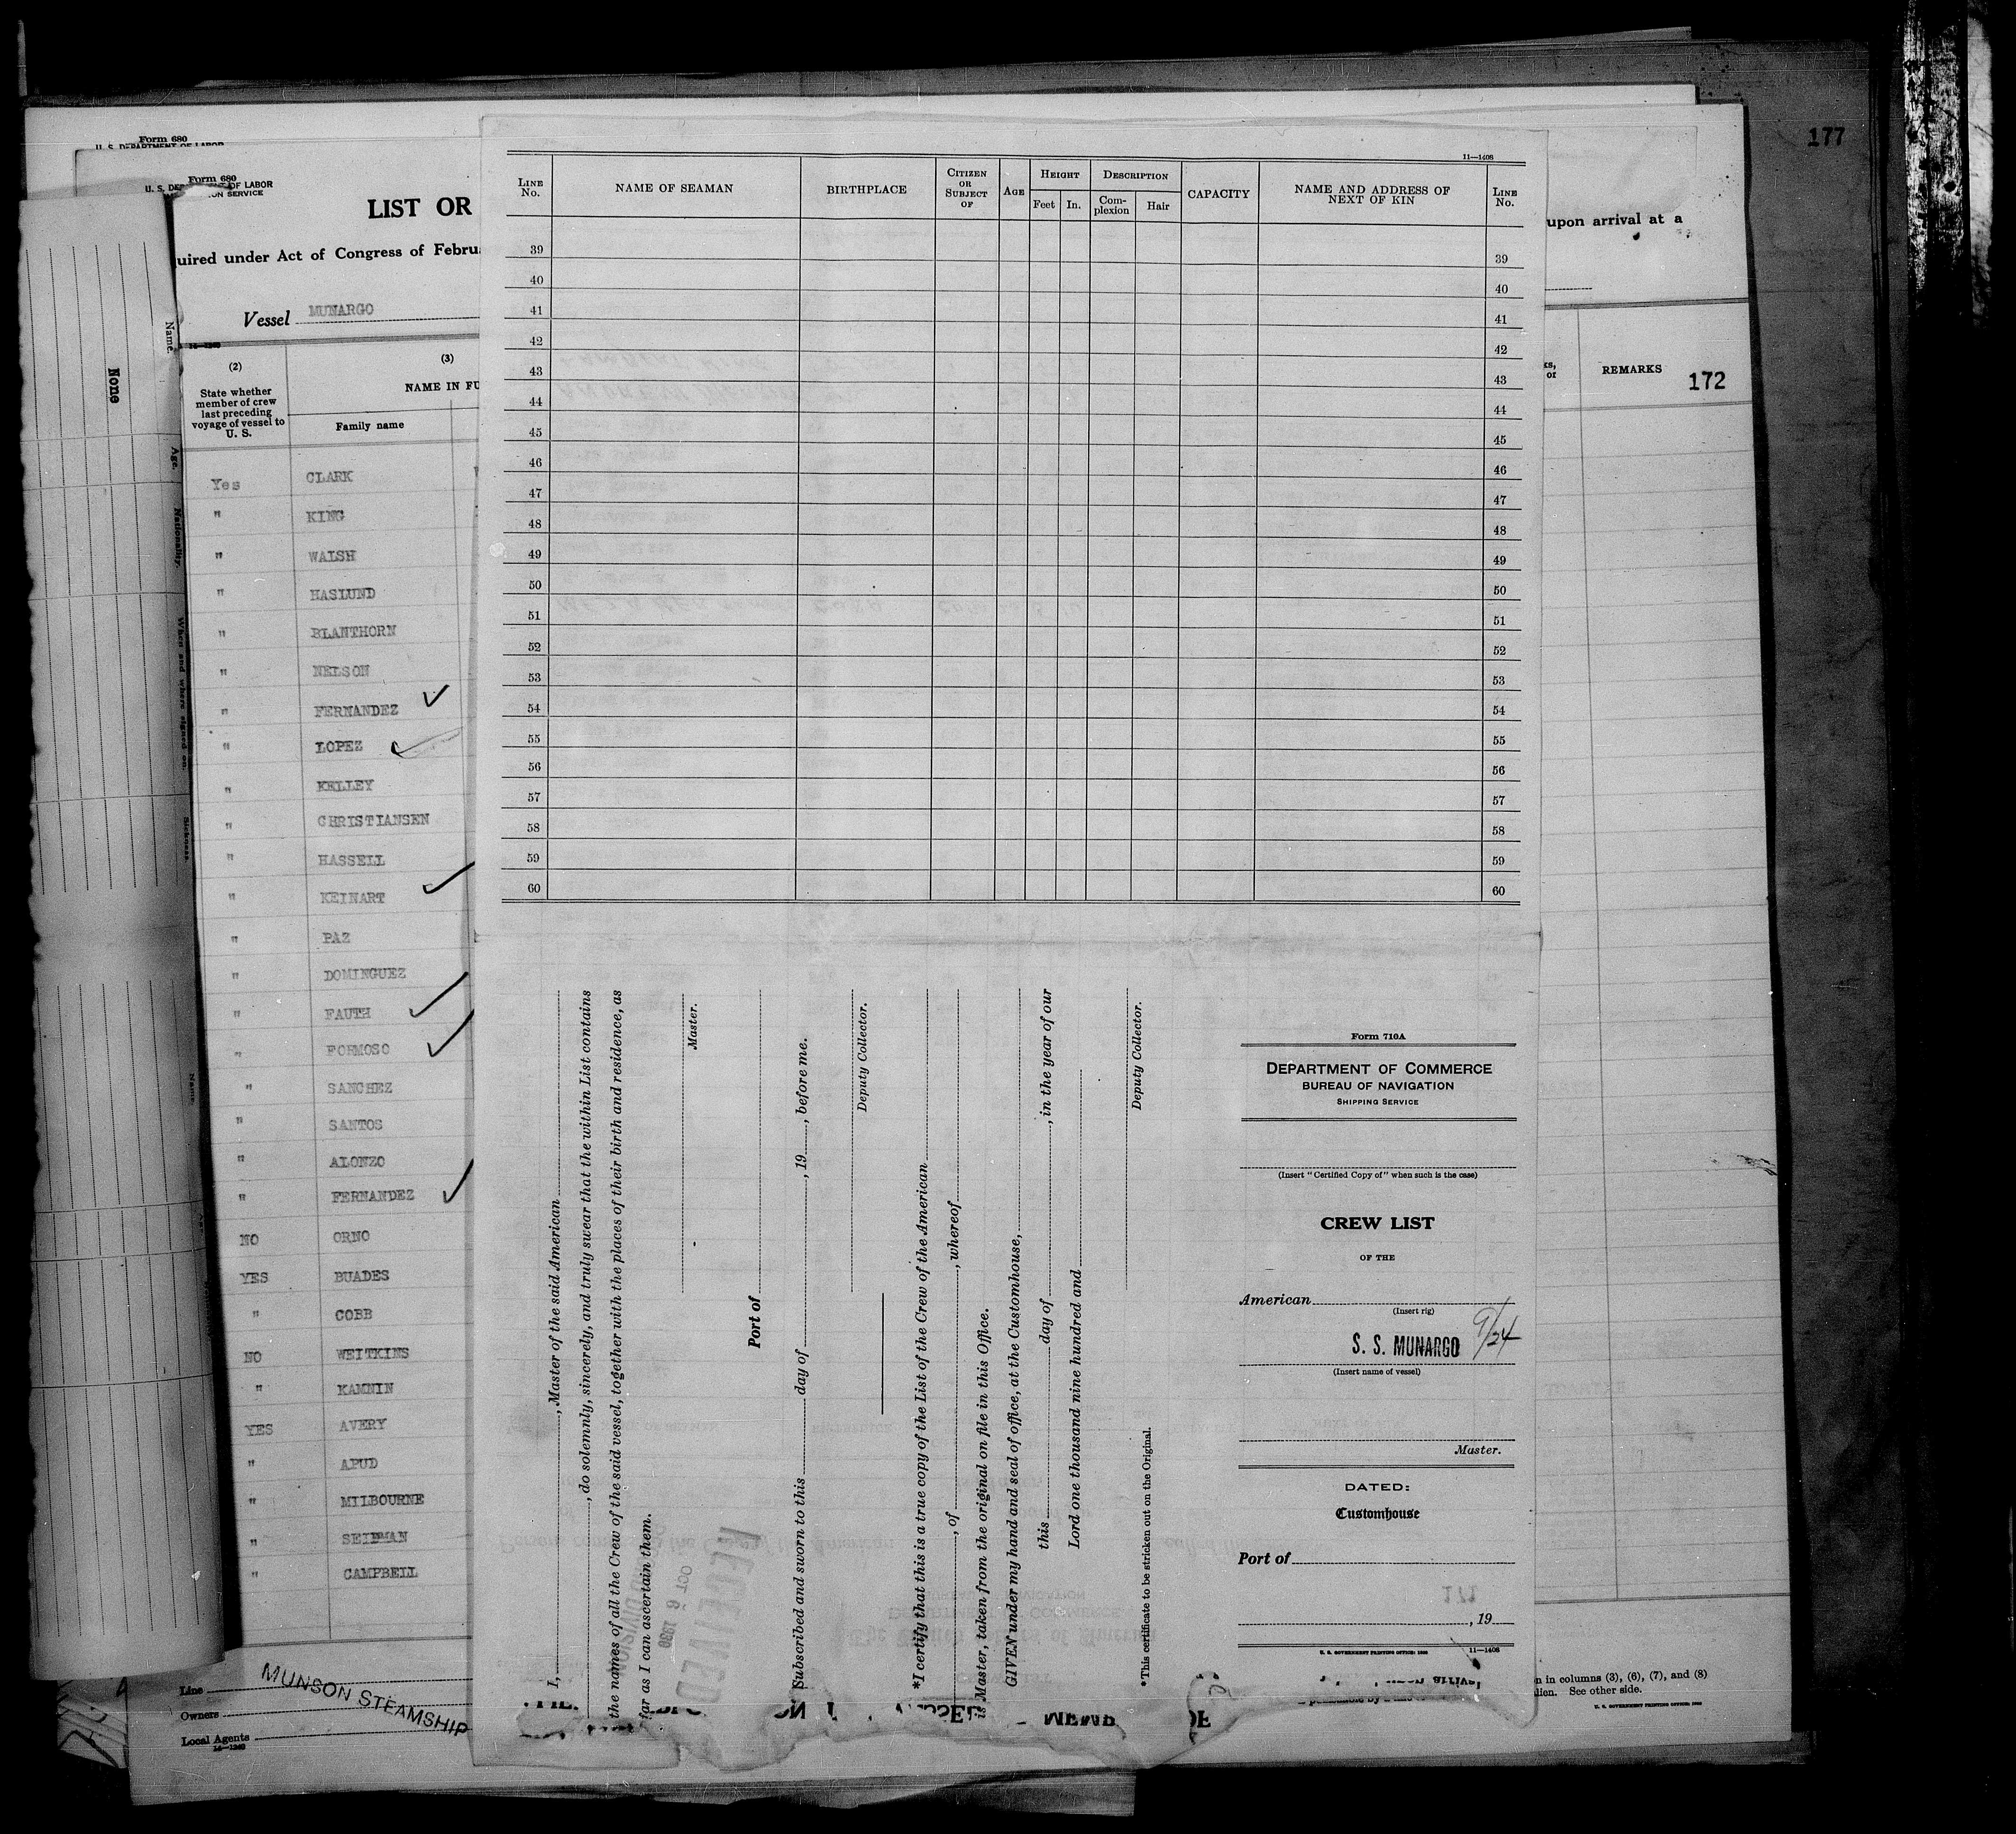 177
Form 680
U. S. DEPARTMENT OF LABOR
Form 680
U. S. DEP OF LABOR
ON SERVICE
LIST OR
uired under Act of Congress of Febru
upon arrival at a
Vessel MUNARGO
(2)
State whether
member of crew
last preceding
voyage of vessel to
U. S.
(3)
NAME IN FU
Family name
REMARKS
172
Name.
None
Age.
Nationality.
When and where signed on.
Sickness.
Name.
Yes CLARK
" KING
" WALSH
" HASLUND
" BLANTHORN
" NELSON
" FERNANDEZ ✓
" LOPEZ ✓
" KELLEY
" CHRISTIANSEN
" HASSELL
" KEINART ✓
" PAZ
" DOMINGUEZ
" FAUTH ✓
" FORMOSO ✓
" SANCHEZ
" SANTOS
" ALONZO
" FERNANDEZ ✓
NO ORNO
YES BUADES
" COBB
NO WEITKINS
" KAMNIN
YES AVERY
" APUD
" MILBOURNE
" SEIDMAN
" CAMPBELL
Line
Owners
Local Agents
14—1240
MUNSON STEAMSHIP
11—1408
LINE No. NAME OF SEAMAN BIRTHPLACE CITIZEN OR SUBJECT OF AGE HEIGHT Feet In. DESCRIPTION Complexion Hair CAPACITY NAME AND ADDRESS OF NEXT OF KIN LINE No.
39 39
40 40
41 41
42 42
43 43
44 44
45 45
46 46
47 47
48 48
49 49
50 50
51 51
52 52
53 53
54 54
55 55
56 56
57 57
58 58
59 59
60 60
I, , Master of the said American
, do solemnly, sincerely, and truly swear that the within List contains
the names of all the Crew of the said vessel, together with the places of their birth and residence, as
far as I can ascertain them.
Master.
Port of
Subscribed and sworn to this day of , 19 , before me.
Deputy Collector.
*I certify that this is a true copy of the List of the Crew of the American
, of , whereof
is Master, taken from the original on file in this Office.
GIVEN under my hand and seal of office, at the Customhouse,
this day of , in the year of our
Lord one thousand nine hundred and
Deputy Collector.
*This certificate to be stricken out on the Original.
RECEIVED
OCT 6 1936
Form 710A
DEPARTMENT OF COMMERCE
BUREAU OF NAVIGATION
SHIPPING SERVICE
(Insert "Certified Copy of" when such is the case)
CREW LIST
OF THE
American
(Insert rig)
S. S. MUNARGO 9/24
(Insert name of vessel)
Master.
DATED:
Customhouse
Port of
171
, 19
U. S. GOVERNMENT PRINTING OFFICE
11—1408
n in columns (3), (6), (7), and (8)
lien. See other side.
U. S. GOVERNMENT PRINTING OFFICE